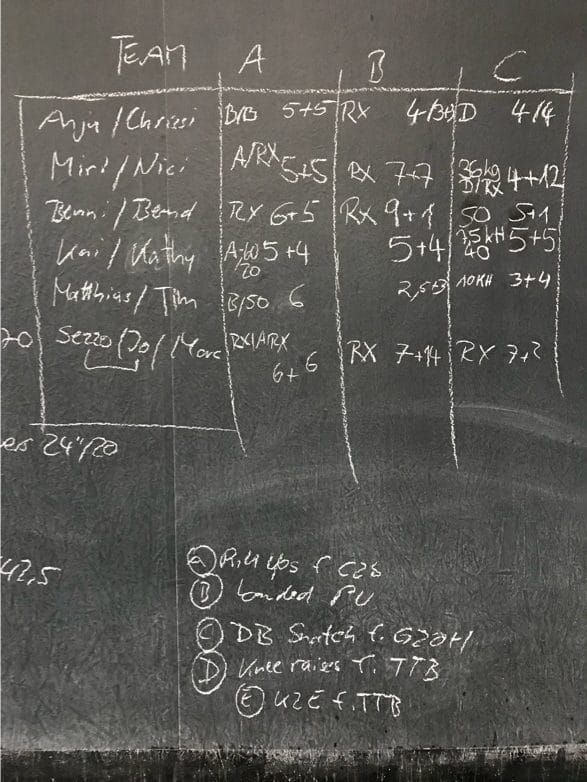 TEAM A B C
Anja / Chrissi B/B 5+5 RX D 4/4
Miri / Nici A/RX 5+5 RX 7+7 36kg D/RX 4+12
Benni / Bernd RX 6+5 RX 9+1 50 5+1
Kai / Kathy 5+4 5+4 40 5+5
Matthias / Tim B/50 6 10KH 3+4
Sezzo /Jo/ Marc RX/ARX 6+6 RX 7+14 RX 7+2
24"/20
42,5
Ⓐ f C2B
Ⓑ banded PU
Ⓒ DB Snatch f. G2OH
Ⓓ Knee raises f. TTB
Ⓔ K2E f. TTB